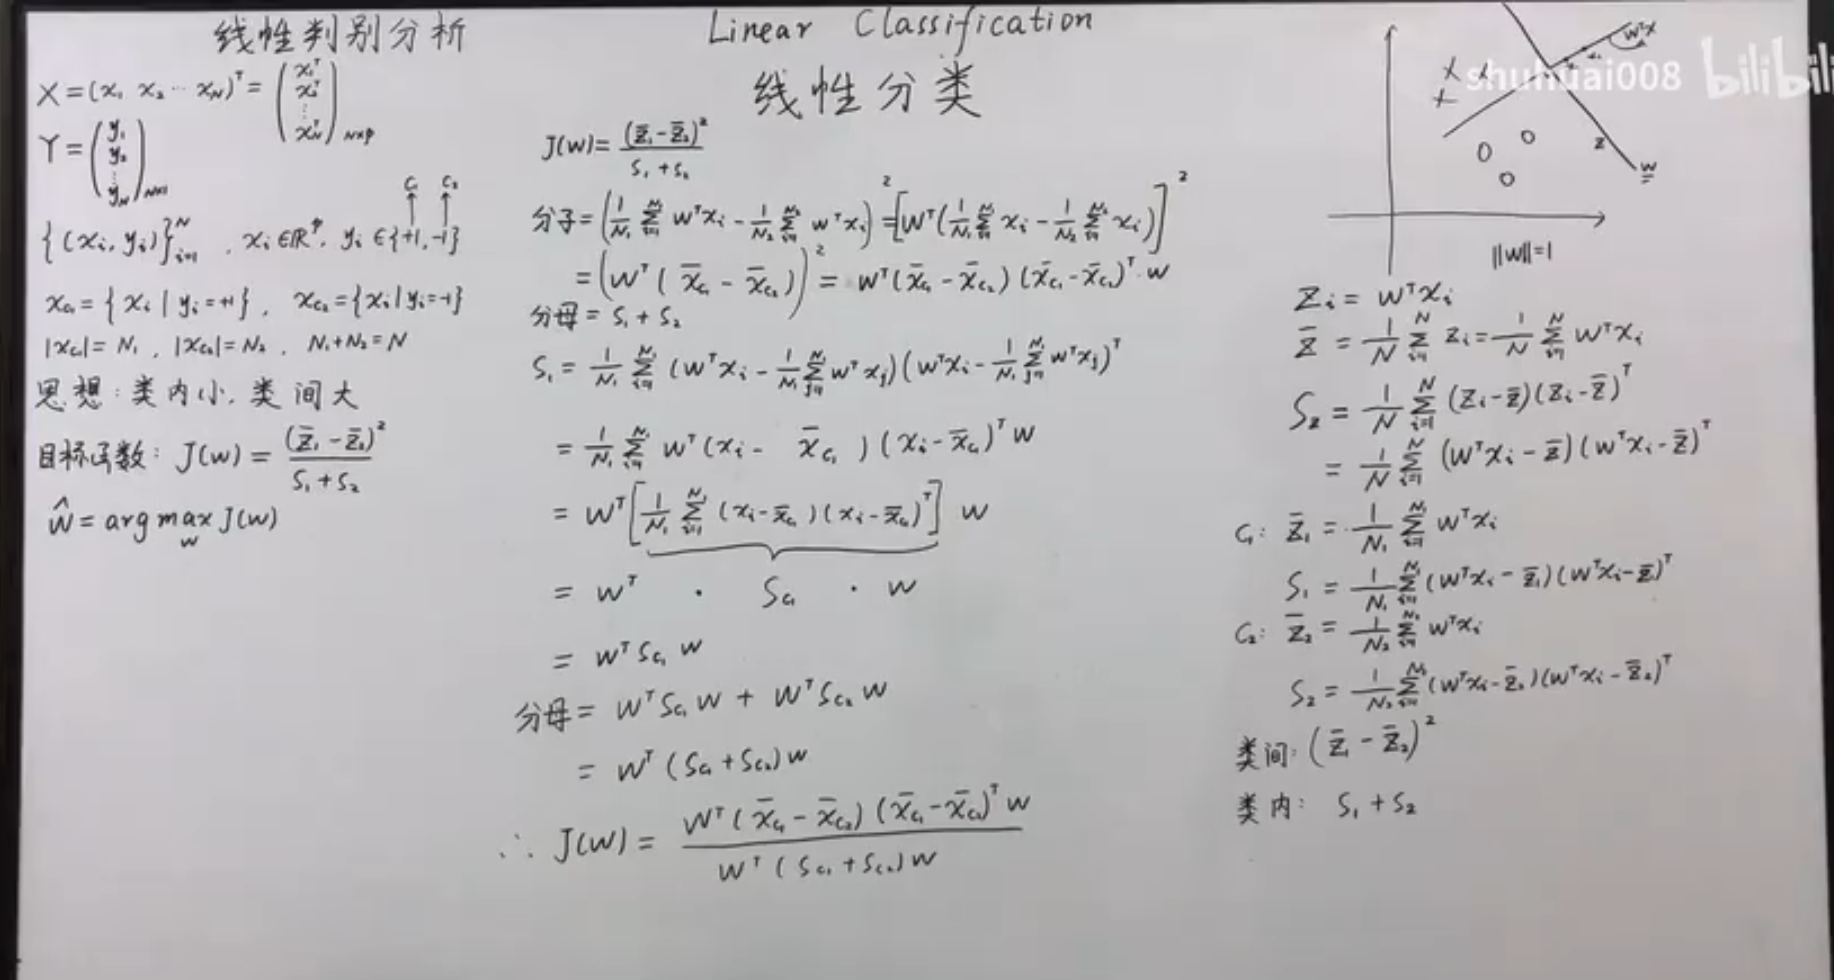 线性判别分析
X = (x₁ x₂ ⋯ x_N)ᵀ = (x₁ᵀ x₂ᵀ ⋮ x_Nᵀ)_{N×p}
Y = (y₁ y₂ ⋮ y_N)_{N×1}
C₁ C₂
{(xᵢ, yᵢ)}ᵢ₌₁ᴺ , xᵢ ∈ ℝᵖ, yᵢ ∈ {+1, -1}
x_{C₁} = {xᵢ | yᵢ = +1}, x_{C₂} = {xᵢ | yᵢ = -1}
|x_{C₁}| = N₁, |x_{C₂}| = N₂, N₁ + N₂ = N
思想: 类内小, 类间大
目标函数: J(w) = (z̄₁ - z̄₂)² / (S₁ + S₂)
ŵ = arg max_w J(w)
Linear Classification
线性分类
J(w) = (z̄₁ - z̄₂)² / (S₁ + S₂)
分子 = (1/N₁ ∑ᵢ₌₁^{N₁} wᵀxᵢ - 1/N₂ ∑ᵢ₌₁^{N₂} wᵀxᵢ)² = [wᵀ(1/N₁ ∑ᵢ₌₁^{N₁} xᵢ - 1/N₂ ∑ᵢ₌₁^{N₂} xᵢ)]²
= (wᵀ(x̄_{C₁} - x̄_{C₂}))² = wᵀ(x̄_{C₁} - x̄_{C₂})(x̄_{C₁} - x̄_{C₂})ᵀ·w
分母 = S₁ + S₂
S₁ = 1/N₁ ∑ᵢ₌₁^{N₁} (wᵀxᵢ - 1/N₁ ∑ⱼ₌₁^{N₁} wᵀxⱼ)(wᵀxᵢ - 1/N₁ ∑ⱼ₌₁^{N₁} wᵀxⱼ)ᵀ
= 1/N₁ ∑ᵢ₌₁^{N₁} wᵀ(xᵢ - x̄_{C₁})(xᵢ - x̄_{C₁})ᵀ w
= wᵀ[1/N₁ ∑ᵢ₌₁^{N₁} (xᵢ - x̄_{C₁})(xᵢ - x̄_{C₁})ᵀ] w
= wᵀ · S_{C₁} · w
= wᵀ S_{C₁} w
分母 = wᵀ S_{C₁} w + wᵀ S_{C₂} w
= wᵀ (S_{C₁} + S_{C₂}) w
∴ J(w) = wᵀ(x̄_{C₁} - x̄_{C₂})(x̄_{C₁} - x̄_{C₂})ᵀ w / wᵀ(S_{C₁} + S_{C₂}) w
wᵀx
shuhuai008 bilibili
z
w
‖w‖=1
zᵢ = wᵀxᵢ
z̄ = 1/N ∑ᵢ₌₁ᴺ zᵢ = 1/N ∑ᵢ₌₁ᴺ wᵀxᵢ
S_z = 1/N ∑ᵢ₌₁ᴺ (zᵢ - z̄)(zᵢ - z̄)ᵀ
= 1/N ∑ᵢ₌₁ᴺ (wᵀxᵢ - z̄)(wᵀxᵢ - z̄)ᵀ
C₁: z̄₁ = 1/N₁ ∑ᵢ₌₁^{N₁} wᵀxᵢ
S₁ = 1/N₁ ∑ᵢ₌₁^{N₁} (wᵀxᵢ - z̄₁)(wᵀxᵢ - z̄₁)ᵀ
C₂: z̄₂ = 1/N₂ ∑ᵢ₌₁^{N₂} wᵀxᵢ
S₂ = 1/N₂ ∑ᵢ₌₁^{N₂} (wᵀxᵢ - z̄₂)(wᵀxᵢ - z̄₂)ᵀ
类间: (z̄₁ - z̄₂)²
类内: S₁ + S₂